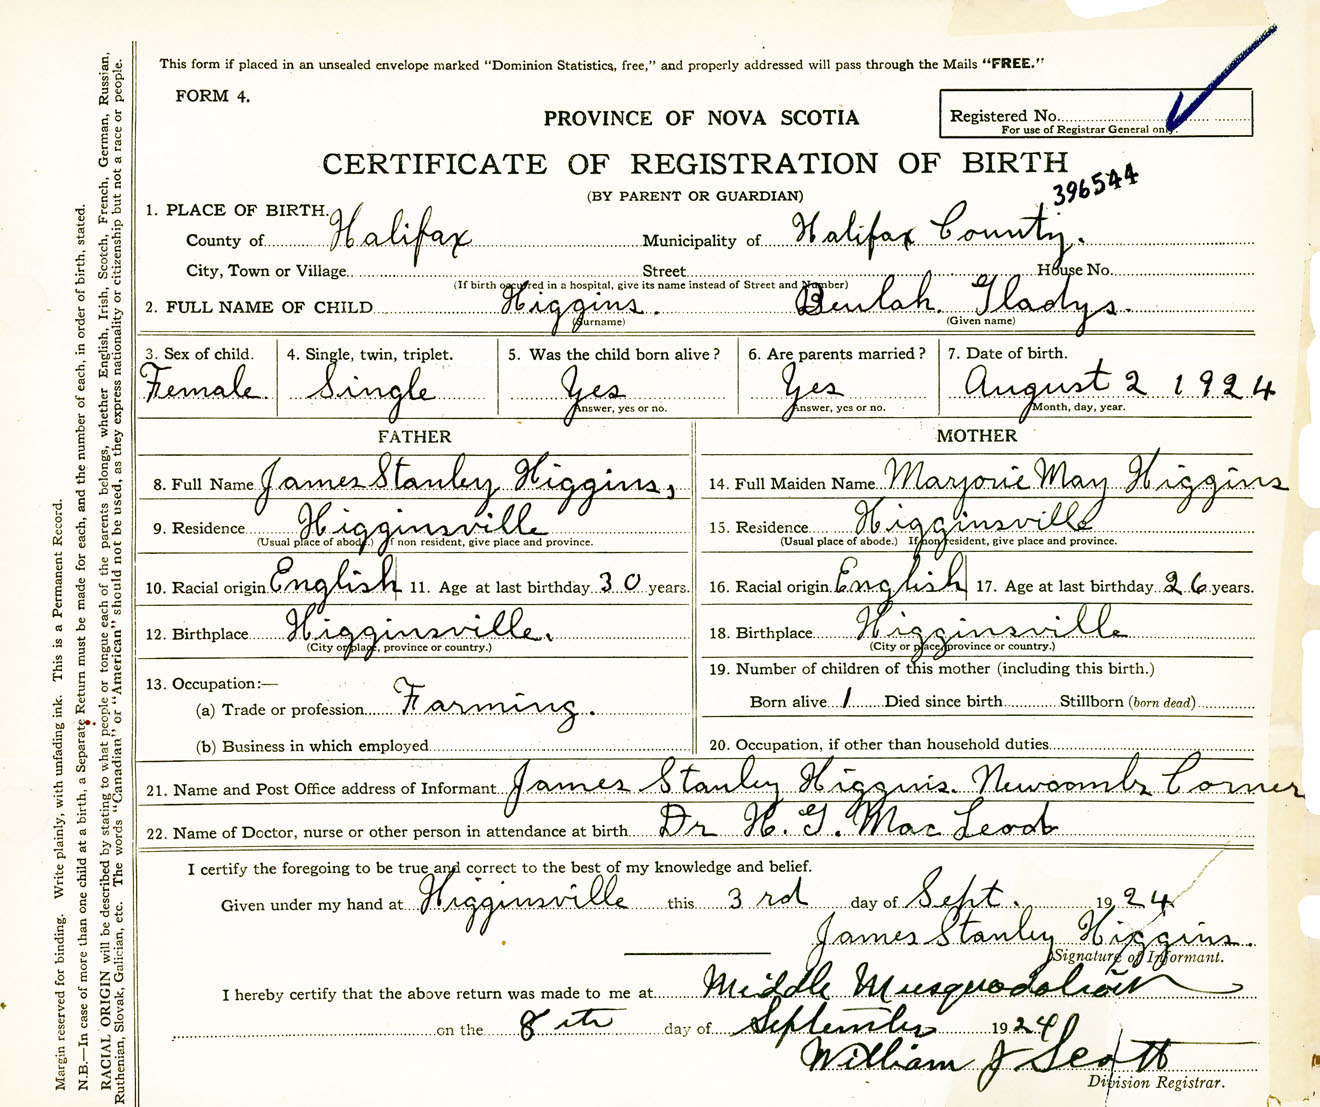 This form if placed in an unsealed envelope marked "Dominion Statistics, free," and properly addressed will pass through the Mails "FREE."
FORM 4.
PROVINCE OF NOVA SCOTIA
Registered No.
For use of Registrar General only.
CERTIFICATE OF REGISTRATION OF BIRTH
(BY PARENT OR GUARDIAN)
396544
1. PLACE OF BIRTH.
County of Halifax Municipality of Halifax County.
City, Town or Village Street House No.
(If birth occurred in a hospital, give its name instead of Street and Number)
2. FULL NAME OF CHILD Higgins. Beulah. Gladys.
(Surname) (Given name)
3. Sex of child. 4. Single, twin, triplet. 5. Was the child born alive? 6. Are parents married? 7. Date of birth.
Female Single Yes Yes August 2 1924
Answer, yes or no. Answer, yes or no. Month, day, year.
FATHER MOTHER
8. Full Name James Stanley Higgins, 14. Full Maiden Name Marjorie May Higgins
9. Residence Higginsville 15. Residence Higginsville
(Usual place of abode.) If non resident, give place and province. (Usual place of abode.) If non resident, give place and province.
10. Racial origin English 11. Age at last birthday 30 years. 16. Racial origin English 17. Age at last birthday 26 years.
12. Birthplace Higginsville. 18. Birthplace Higginsville
(City or place, province or country.) (City or place, province or country.)
13. Occupation:— 19. Number of children of this mother (including this birth.)
(a) Trade or profession Farming. Born alive 1 Died since birth Stillborn (born dead)
(b) Business in which employed 20. Occupation, if other than household duties
21. Name and Post Office address of Informant James Stanley Higgins. Newcombs Corner
22. Name of Doctor, nurse or other person in attendance at birth Dr H. G. MacLeod
I certify the foregoing to be true and correct to the best of my knowledge and belief.
Given under my hand at Higginsville this 3rd day of Sept. 1924
James Stanley Higgins.
Signature of Informant.
I hereby certify that the above return was made to me at Middle Musquodoboit
on the 8th day of September 1924
William J Scott
Division Registrar.
Margin reserved for binding. Write plainly, with unfading ink. This is a Permanent Record.
N.B.—In case of more than one child at a birth, a Separate Return must be made for each, and the number of each, in order of birth, stated.
RACIAL ORIGIN will be described by stating to what people or tongue each of the parents belongs, whether English, Irish, Scotch, French, German, Russian,
Ruthenian, Slovak, Galician, etc. The words "Canadian" or "American" should not be used, as they express nationality or citizenship but not a race or people.